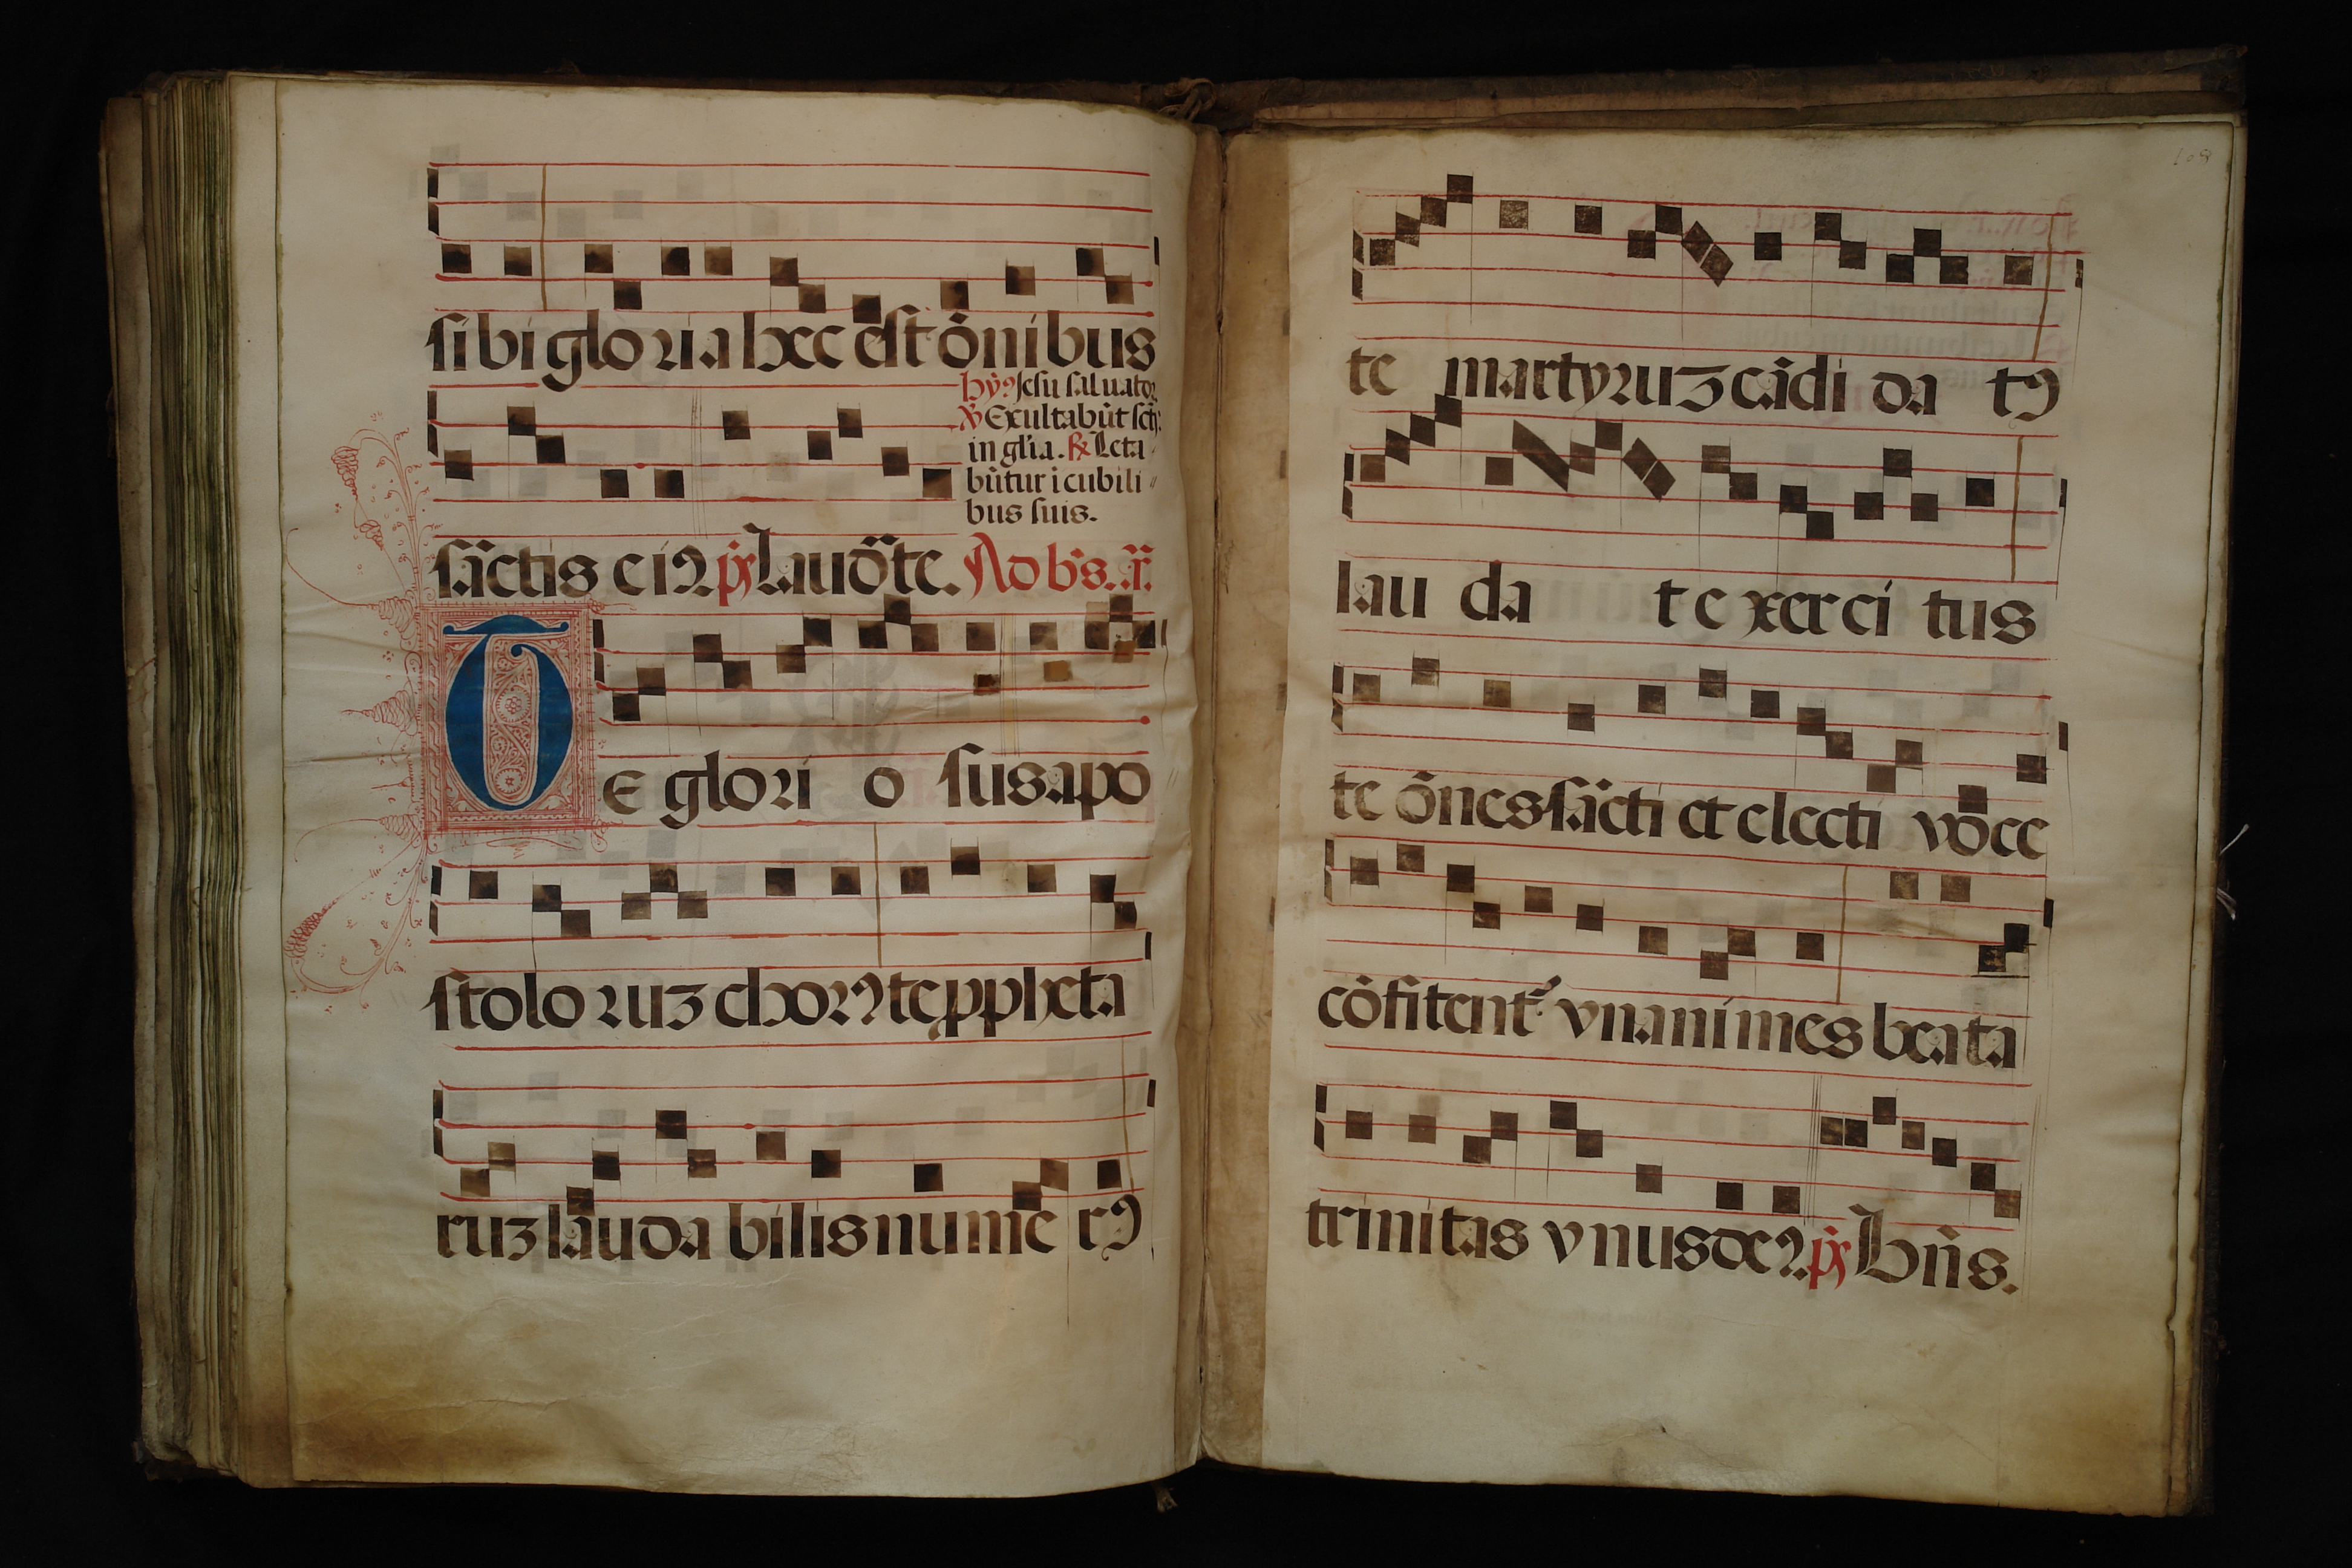 sibi gloria hec est õnibus
hyꝰ Jesu saluator
℣ Exultabũt scti
in glia. ℟ Leta
bũtur i cubili
bus suis.
sãctis eiꝰ ps Laudãte. Ad bñs. ã.
TE glori o sus apo
stolo ruʒ chorꝰ te ꝓpheta
ruʒ lauda bilis nume rꝰ
108
te martyruʒ cãdi da tꝰ
lau da t exerci tus
te õnes sãcti et electi voce
cõfitent᷑ vnanimes beata
trinitas vnus deꝰ. ps Bñs.